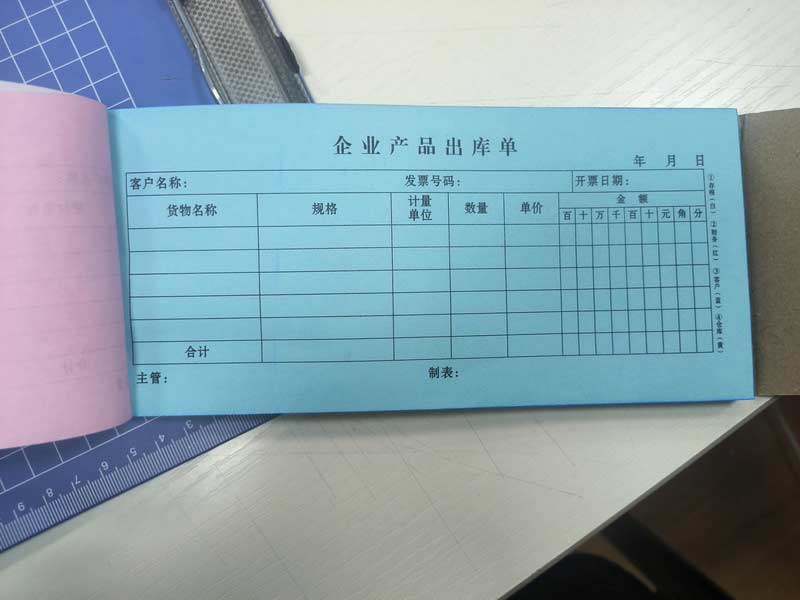 企业产品出库单
年 月 日
客户名称： 发票号码： 开票日期：
货物名称 规格 计量单位 数量 单价 金额
百 十 万 千 百 十 元 角 分
合计
主管： 制表：
①存根（白） ②财务（红） ③客户（蓝） ④仓库（黄）
3 4 5 6 7 8 9